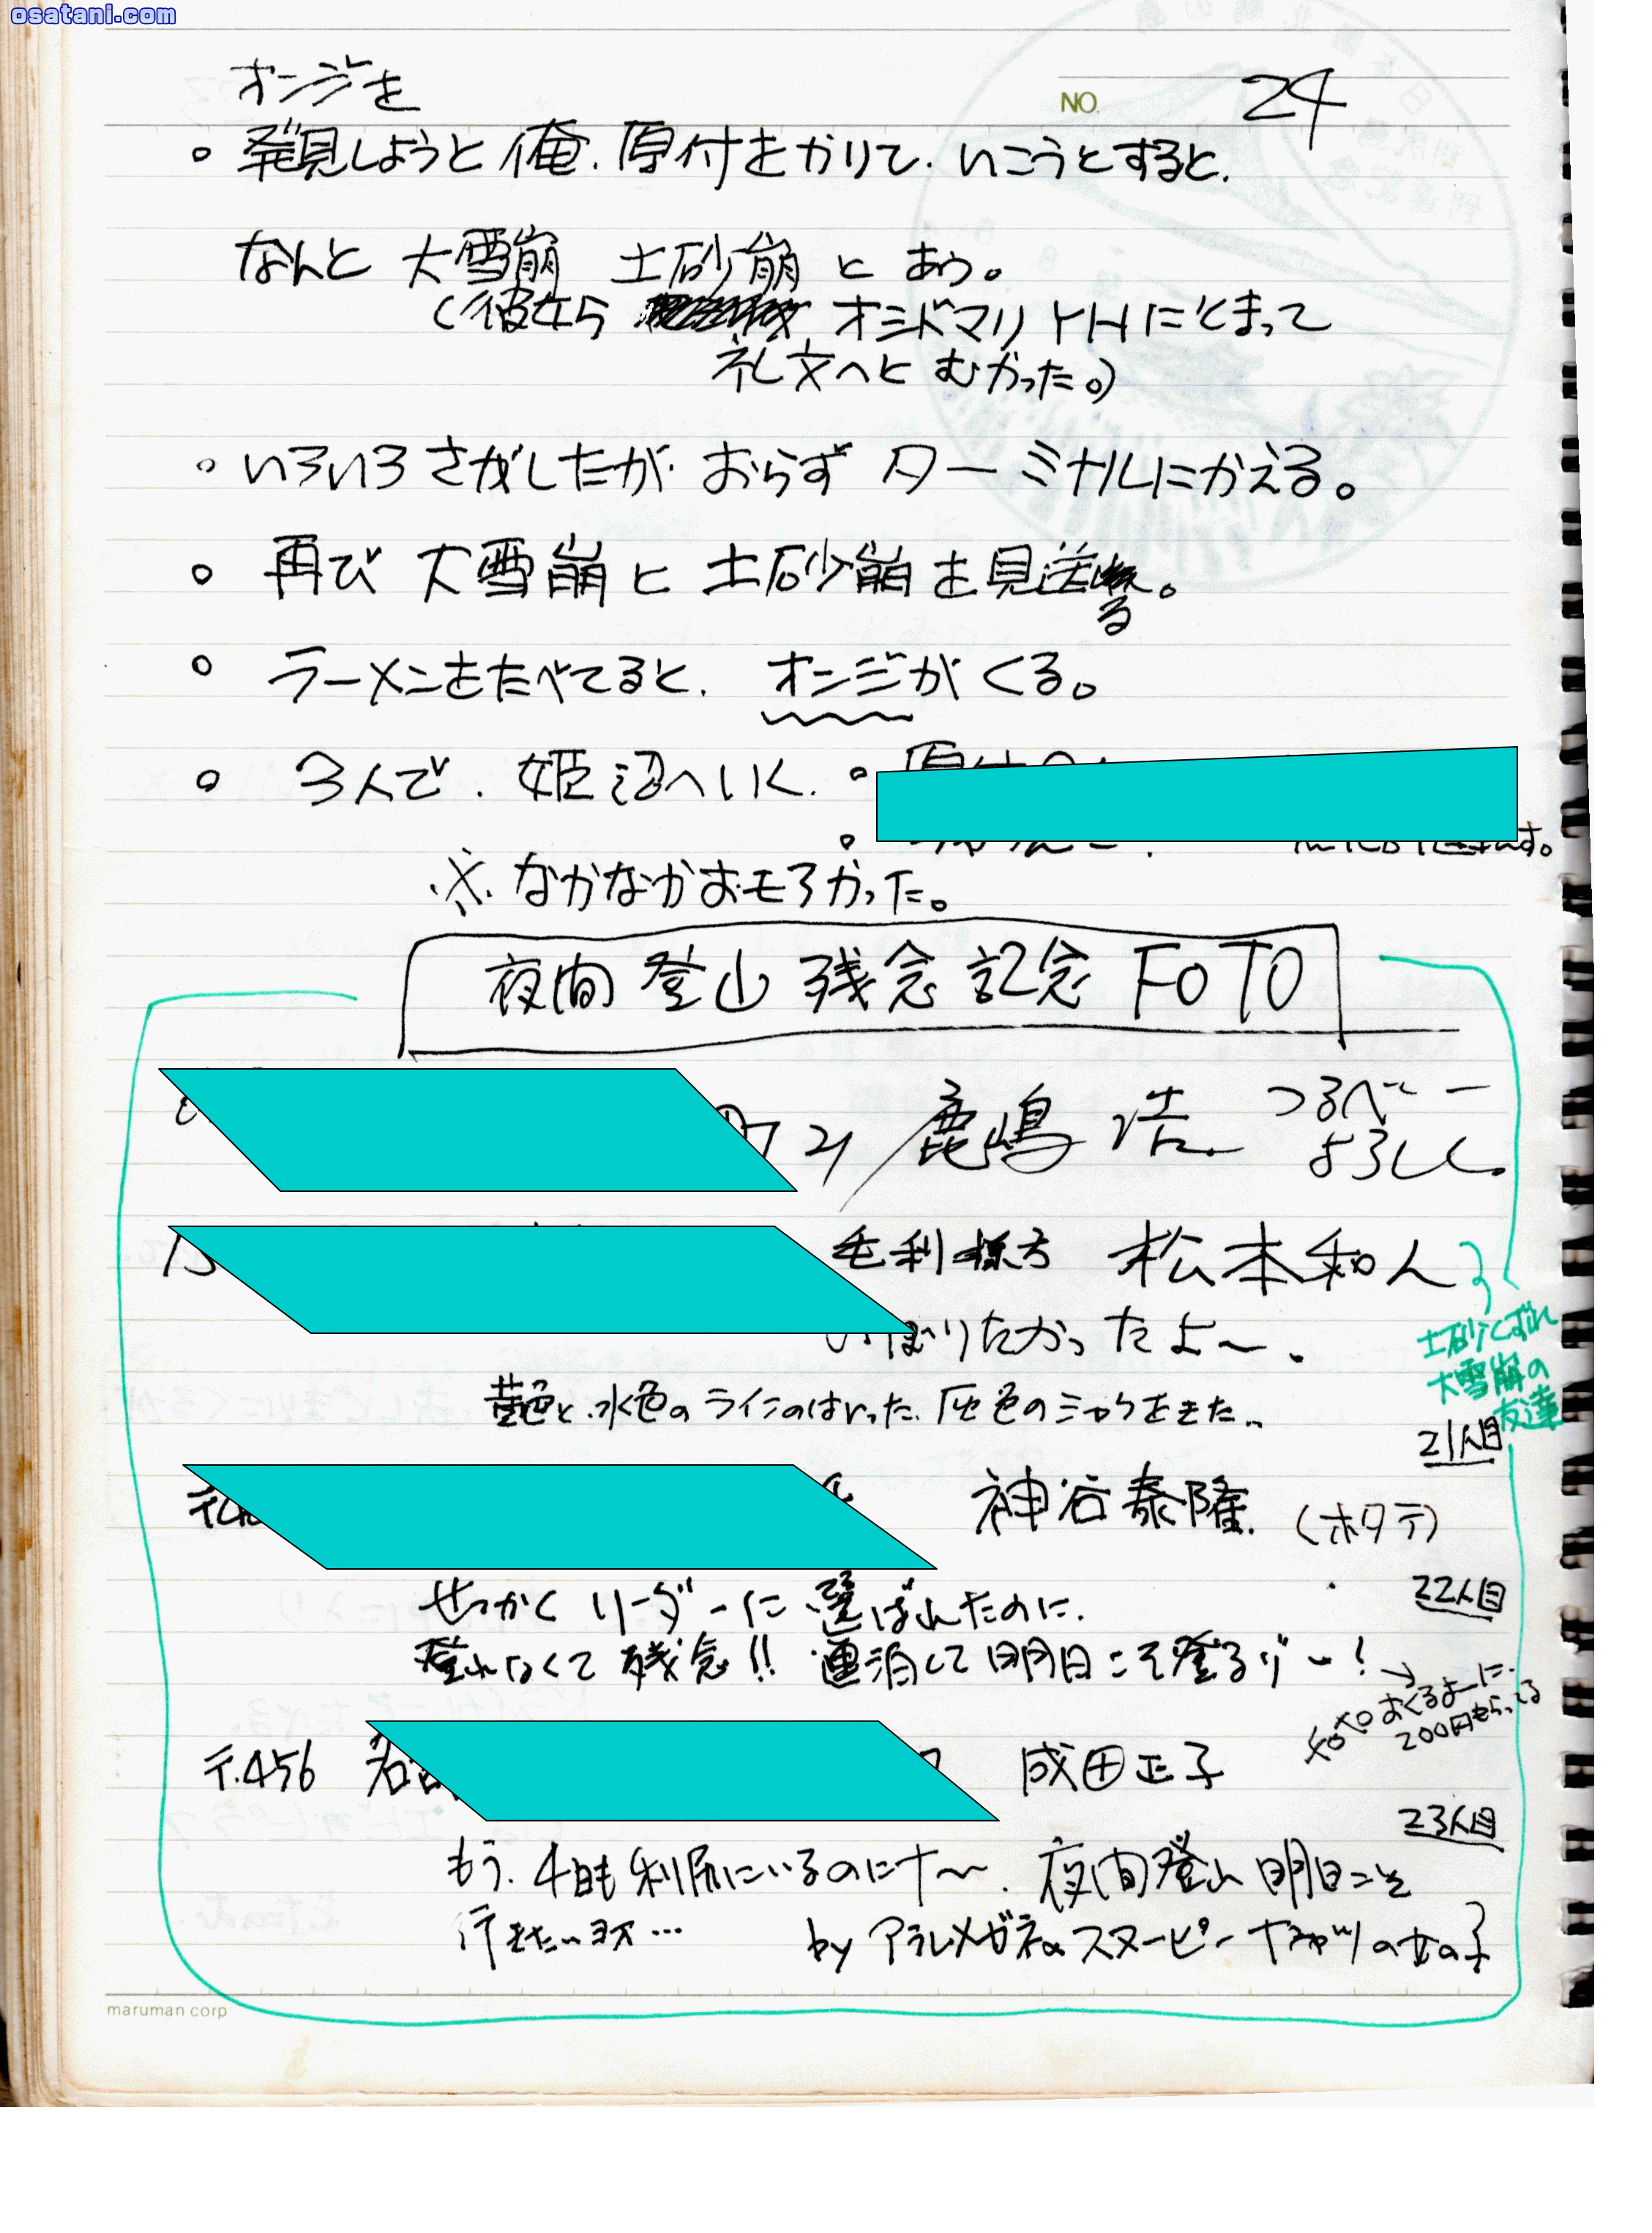 osatani.com
NO. 24
オンジを
○ 発見しようと俺、原付をかりて、いこうとすると、
なんと 大雪崩 土砂崩 と あう。
(彼女ら オシドマリYHにとまって
礼文へと むかった。)
○ いろいろさがしたが おらず ターミナルにかえる。
○ 再び 大雪崩と 土砂崩を見送る。
○ ラーメンをたべてると、オンジがくる。
○ 3人で、姫沼へいく。○
○
※ なかなかおモろかった。
夜間 登山 残念 記念 FOTO
鹿嶋 浩 つるべー
よろしく
毛利様方 松本和人
ぼりたかったよ〜、
土砂くずれ
大雪崩の
友達
黄色と水色のラインのはいった、灰色のシャツをきた…
21人目
神谷泰隆 (ホタテ)
せっかくリーダーに選ばれたのに、
22人目
登れなくて残念!! 連泊して明日こそ登るゾー!
→
おくるよーに
200円もらってる
〒456 名 成田正子
23人目
もう、4日も利尻にいるのにナ〜、夜間登山明日こそ
行きたいヨネ…
by アラレメガネのスヌーピーTシャツの女の子
maruman corp